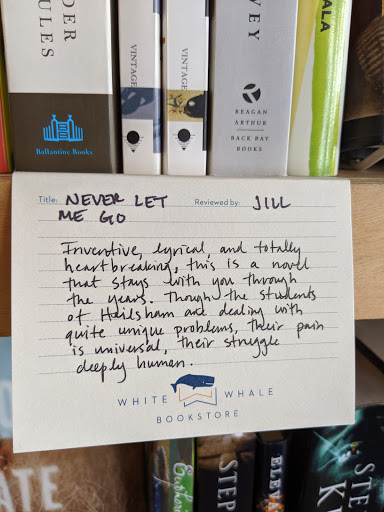 DER
ULES
Ballantine Books
VINTAGE
VINTAGE
VEY
REAGAN
ARTHUR
BACK BAY
BOOKS
ALA
Title: NEVER LET Reviewed by: JILL
ME GO
Inventive, lyrical, and totally
heartbreaking, this is a novel
that stays with you through
the years. Though the students
of Hailsham are dealing with
quite unique problems, their pain
is universal, their struggle
deeply human.
WHITE WHALE
BOOKSTORE
ATE
Euphoria
STEP
ELEVA
STE
K